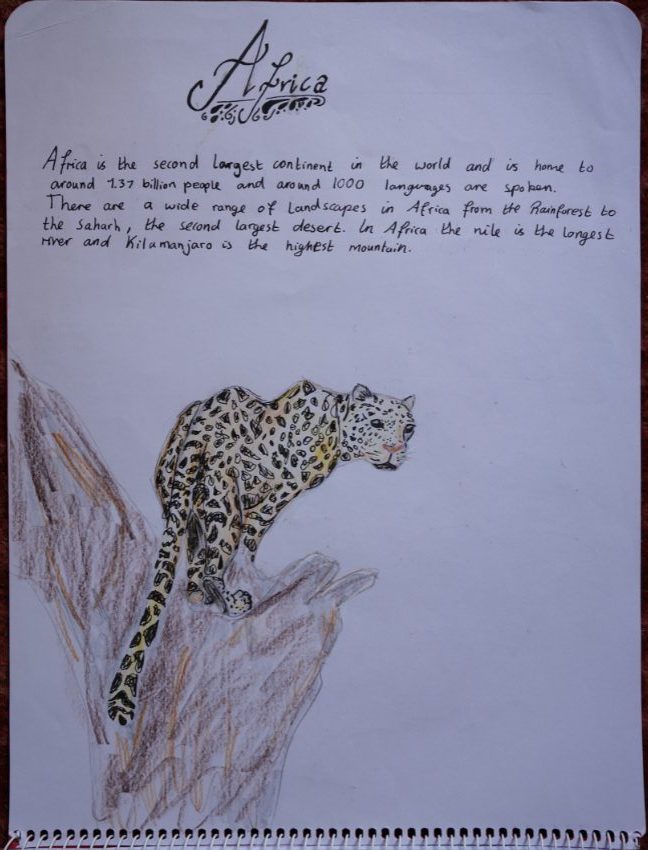 Africa
Africa is the second largest continent in the world and is home to
around 1.37 billion people and around 1000 languages are spoken.
There are a wide range of landscapes in Africa from the Rainforest to
the Saharh, the second largest desert. In Africa the nile is the longest
river and Kilamanjaro is the highest mountain.